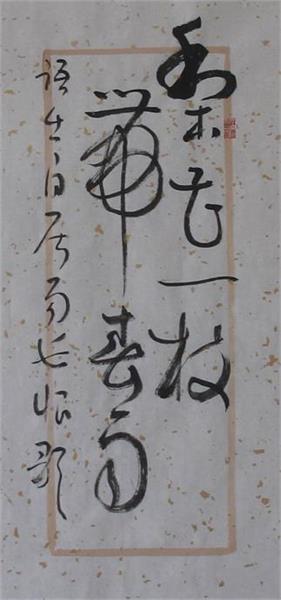 梨花一枝
带春雨
语出白居易长恨歌